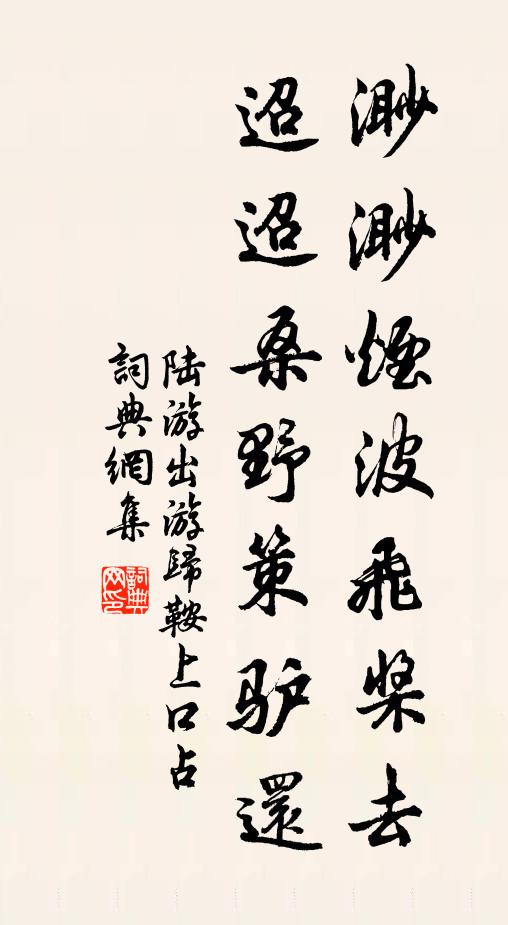 渺渺煙波飛槳去
迢迢桑野策驴還
陆游出游歸鞍上口占
詞典網集
詞典
网印